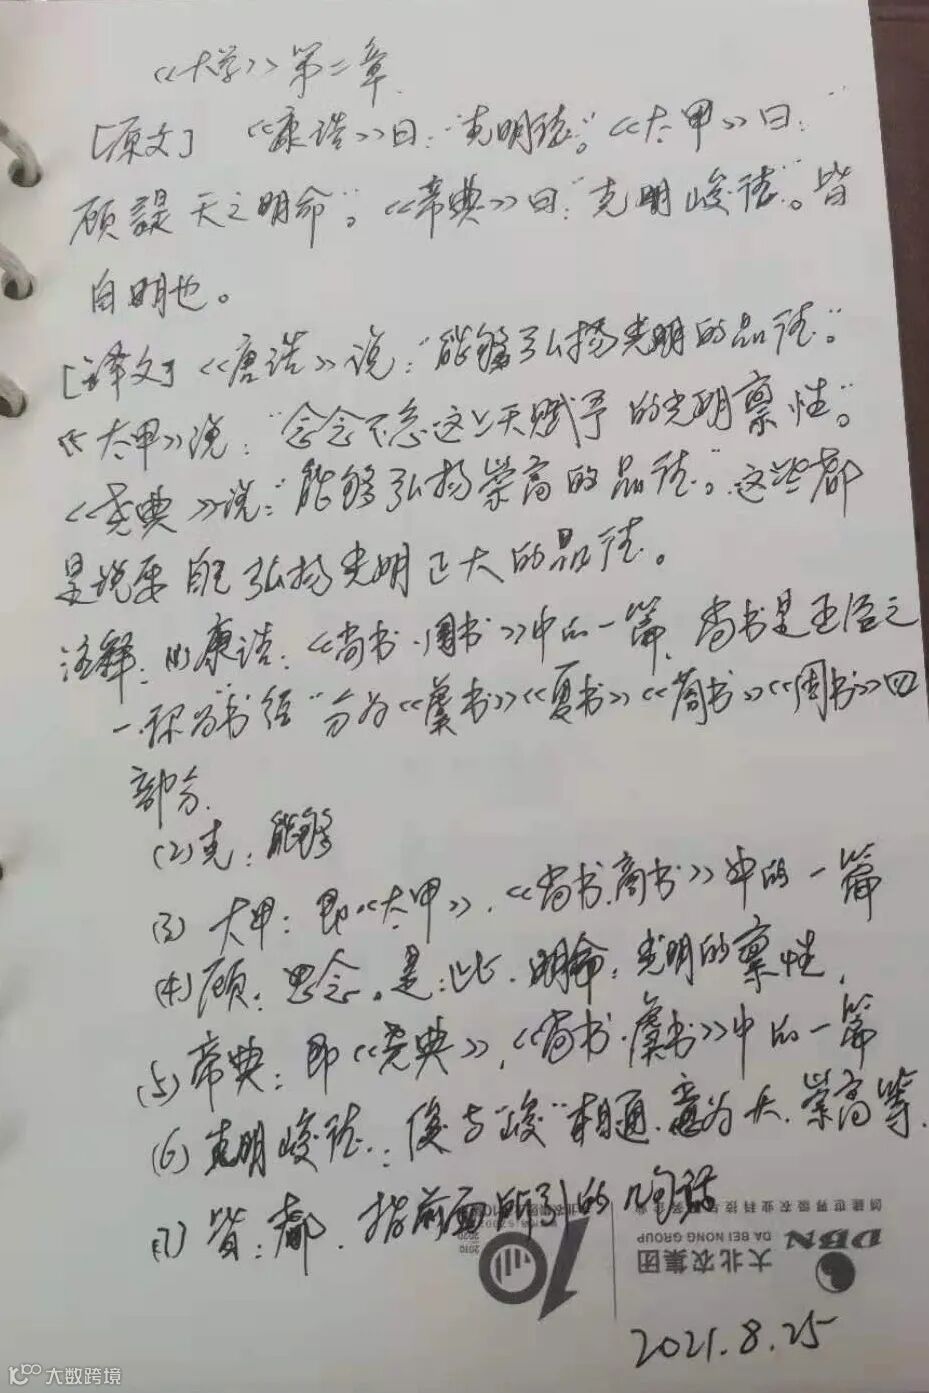 《大学》第二章.
[原文] 《康诰》曰:"克明德。"《大甲》曰:"
顾諟天之明命"。《帝典》曰:"克明峻德"。皆
自明也。
[译文]《唐诰》说:"能够弘扬光明的品德。"
《大甲》说:"念念不忘这上天赋予的光明禀性。"
《尧典》说:"能够弘扬崇高的品德"。这些都
是说要自己弘扬光明正大的品德。
注释:(1)康诰:《尚书·周书》中的一篇,尚书是五经之
一.称为"书经"分为《虞书》《夏书》《商书》《周书》四
部分.
(2)克:能够
(3)大甲:即《太甲》.《尚书.商书》中的一篇
(4)顾:思念。是:此.明命:光明的禀性.
(5)帝典:即《尧典》,《尚书·虞书》中的一篇
(6)克明峻德:俊与"峻"相通.意为大.崇高等.
(7)皆:都.指前面所引的几句话
DBN
大北农集团
DA BEI NONG GROUP
10
2010
2021.8.25
大数跨境